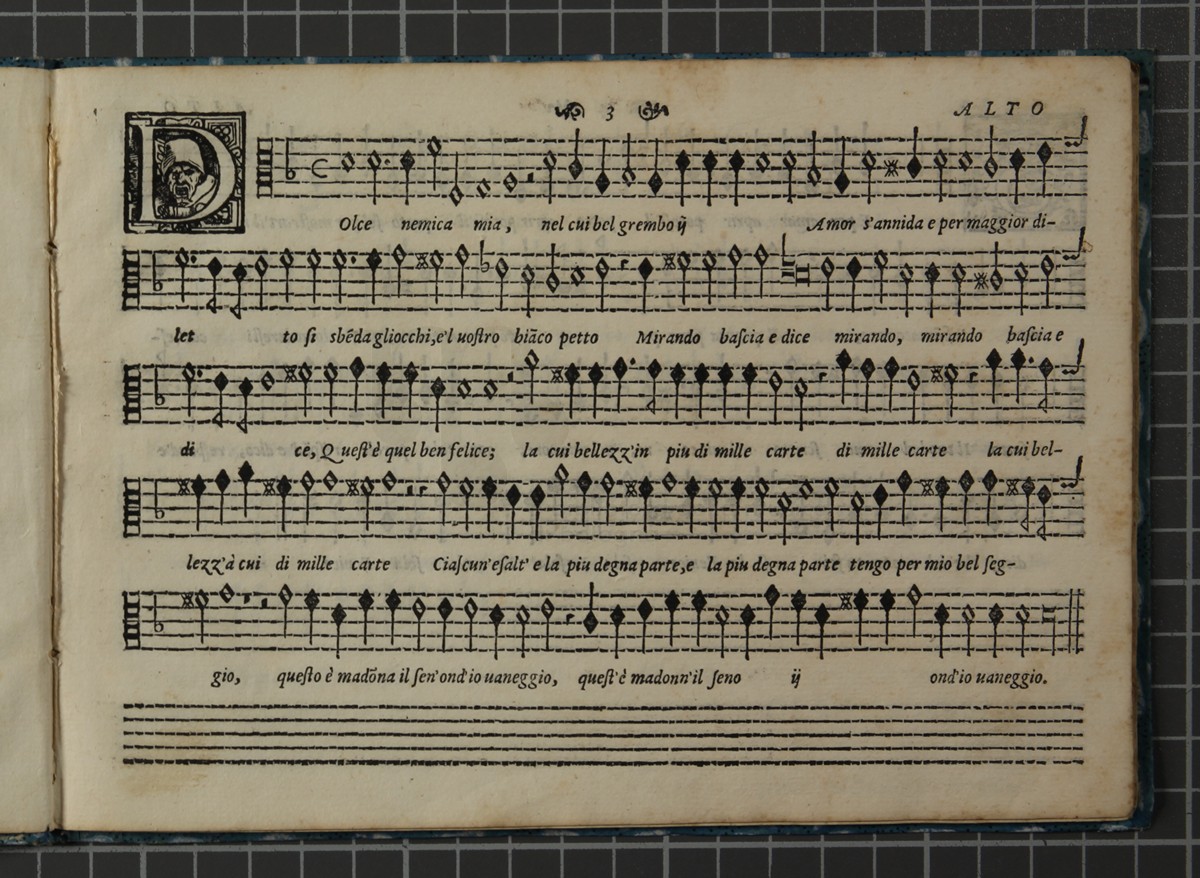 3 ALTO
DOlce nemica mia, nel cui bel grembo ij Amor s'annida e per maggior di-
let to si sbẽda gliocchi, e'l uostro biãco petto Mirando bascia e dice mirando, mirando bascia e
di ce, Quest'è quel ben felice; la cui bellezz'in piu di mille carte di mille carte la cui bel-
lezz'à cui di mille carte Ciascun'esalt' e la piu degna parte, e la piu degna parte tengo per mio bel seg-
gio, questo è madõna il sen'ond'io uaneggio, quest'è madonn'il seno ij ond'io uaneggio.